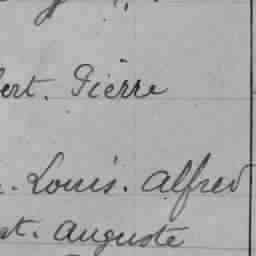 Pierre
Louis. Alfred
Auguste